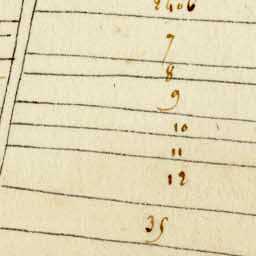 7
8
9
10
11
12
35